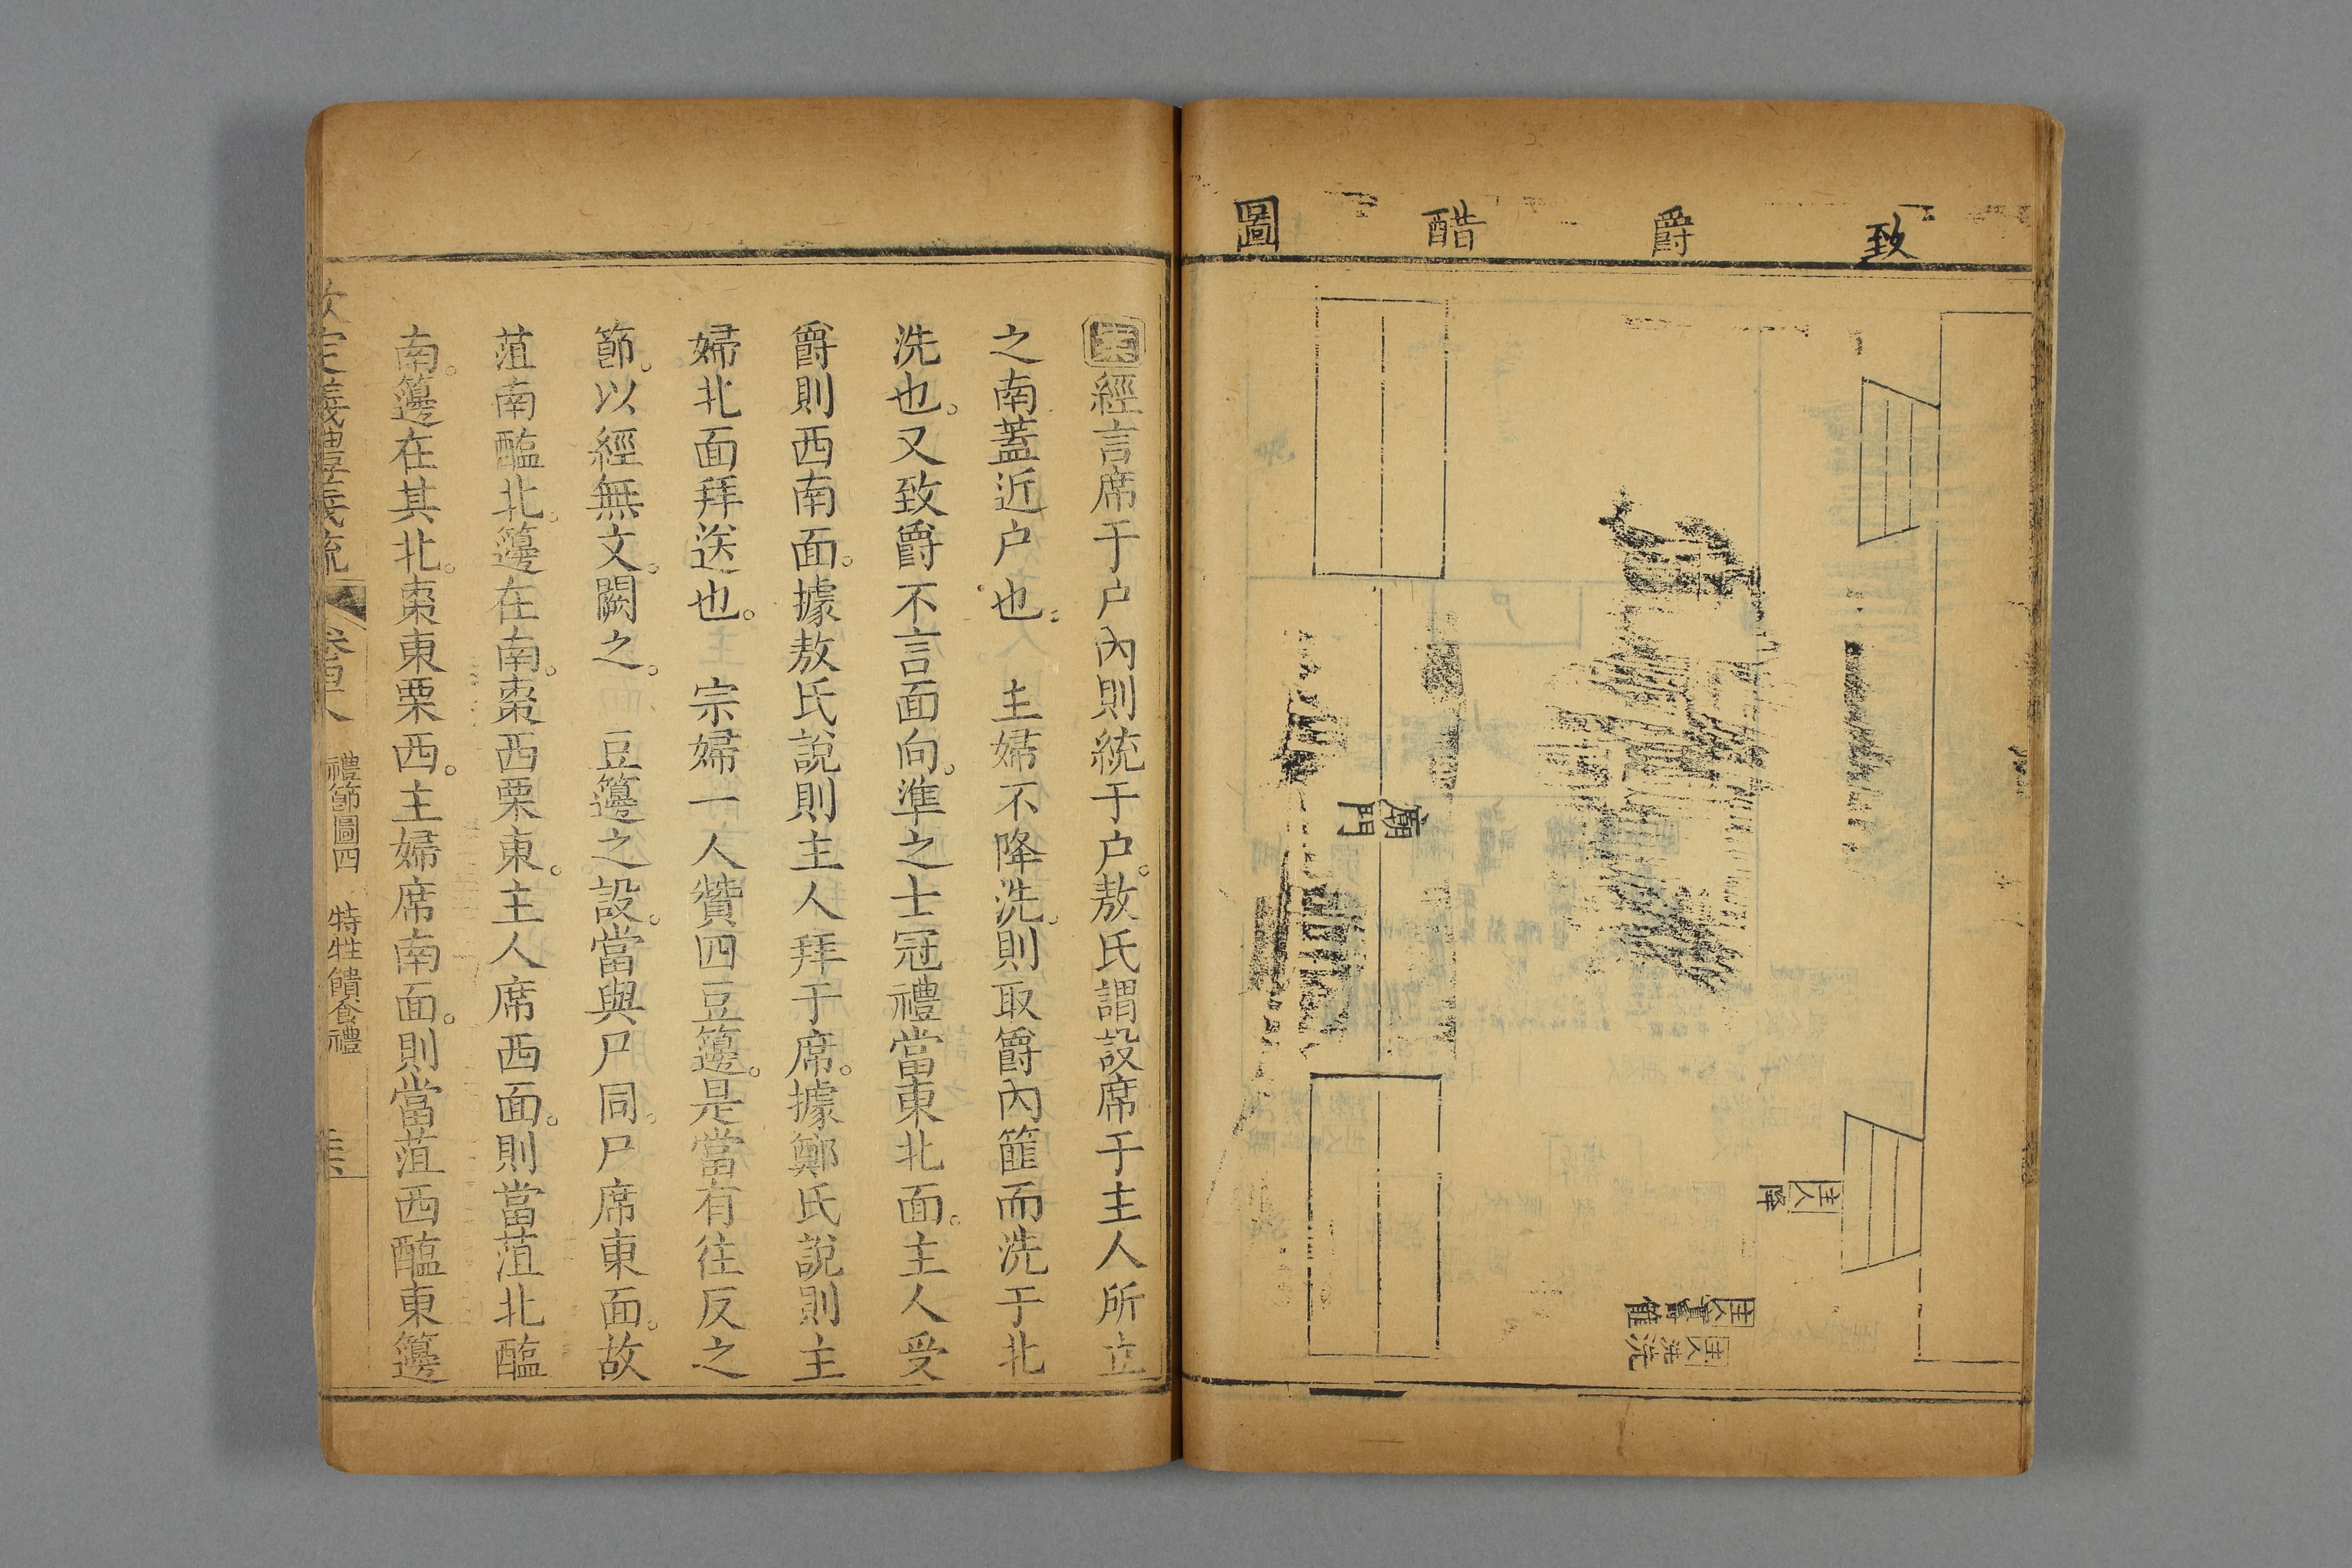 致爵酢圖
廟門
主人降
主人實爵
主人洗
案經言席于户內則統于户。敖氏謂設席于主人所立
之南蓋近户也。主婦不降洗。則取爵內篚而洗于北
洗也。又致爵不言面向。準之士冠禮當東北面。主人受
爵則西南面。據敖氏說則主人拜于席。據鄭氏說則主
婦北面拜送也。宗婦一人贊四豆籩。是當有往反之
節。以經無文。闕之。豆籩之設。當與尸同。尸席東面。故
菹南醢北。籩在南。棗西栗東。主人席西面。則當菹北醢
南。籩在其北。棗東栗西。主婦席南面。則當菹西醢東籩
欽定義禮義疏 卷四十八 禮節圖四 特牲饋食禮